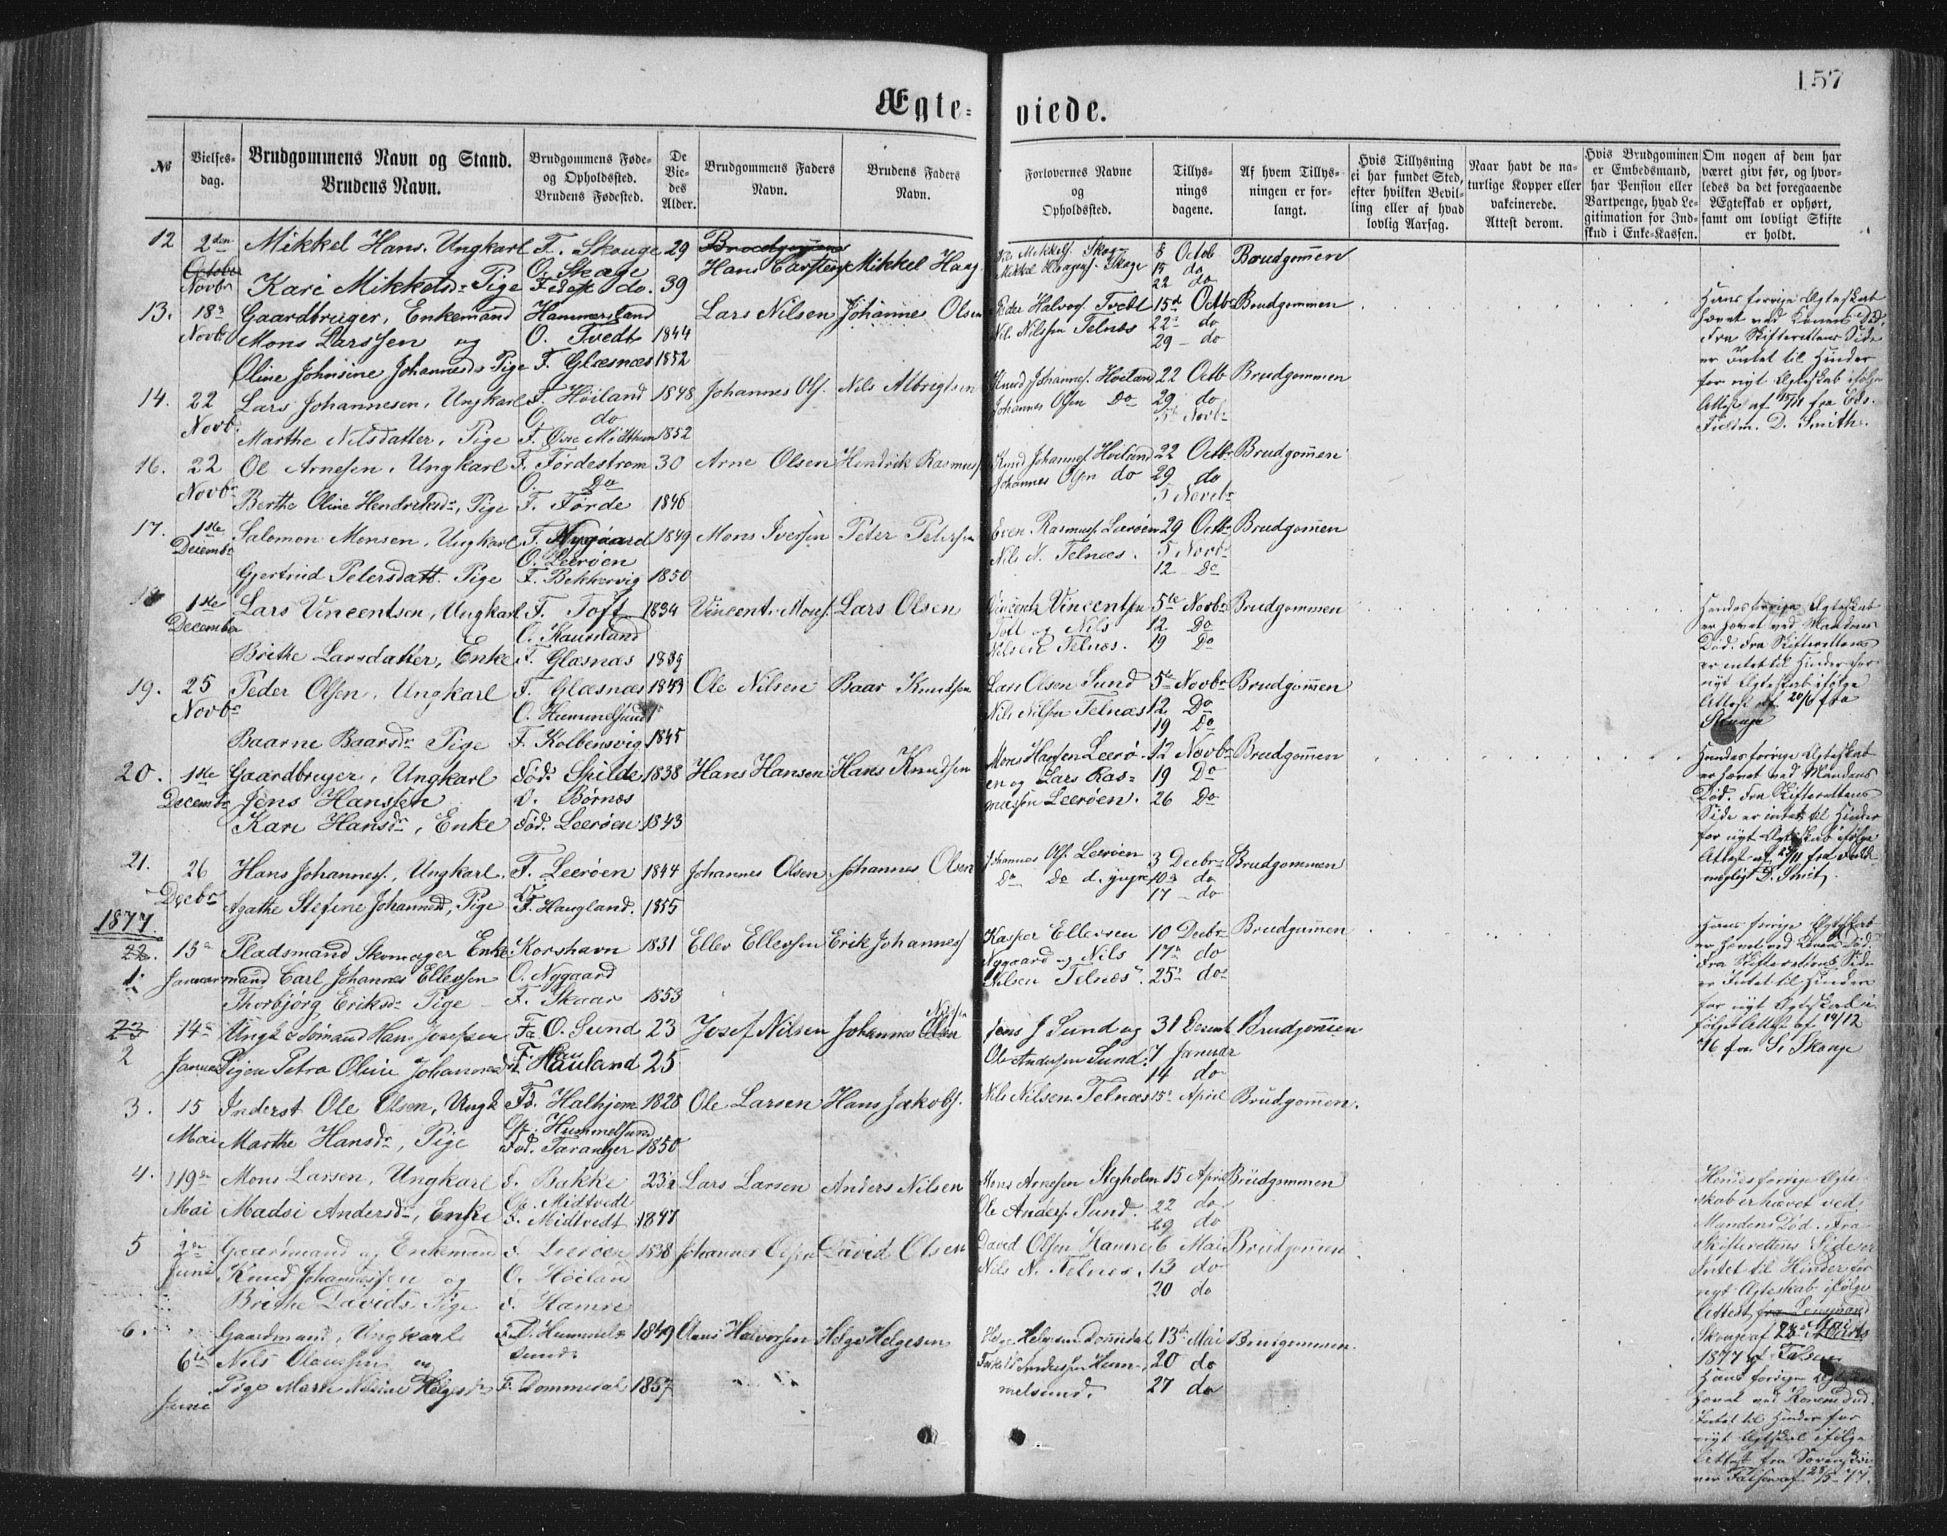 157
Ægte= viede.
No
Vielses-
dag.
Brudgommens Navn og Stand.
Brudens Navn.
Brudgommens Føde-
og Opholdssted.
Brudens Fødested.
De
Vie-
des
Alder.
Brudgommens Faders
Navn.
Brudens Faders
Navn.
Forlovernes Navne
og
Opholdssted.
Tillys-
nings
dagene.
Af hvem Tillys-
ningen er for-
langt.
Hvis Tillysning
ei har fundet Sted,
efter hvilken Bevil-
ling eller af hvad
lovlig Aarsag.
Naar havt de na-
turlige Kopper eller
vakcinerede.
Attest derom.
Hvis Brudgommen
er Embedsmand,
har Pension eller
Vartpenge, hvad Le-
gitimation for Ind-
skud i Enke-Kassen.
Om nogen af dem har
været gift før, og hvor-
ledes da det foregaaende
Ægteskab er ophørt,
samt om lovligt Skifte
er holdt.
12 2den Mikkel Hans. Ungkarl F. Skouge 29 Mikkel Skoge 8 Octob Brudgommen
October O. Skage Hans Carstens Mikkel Haag Mikkel Skoge 15 do
Novbr Kari Mikkelsdr Pige do. 39 22 do
13. 18de Gaardbruger, Enkemand Hammersland Lars Nilsen Johannes Olsen Peder Halvors Tvedt 15de Octb Brudgommen
Novbr Mons Larssen og O. Tvedt 1844 Nils Nilssen Telnæs 22 do
29 do
Oline Johnsine Johannesdr Pige F. Glæsnæs 1852
Hans forrige Ægteskab
hævet ved Konens Død.
Fra Skifterettens Side
er Intet til Hinder
for nyt Ægteskab ifølge
Attest af 15/11 fra
D. Smith.
14. 22 Lars Johannesen, Ungkarl F. Høiland 1848 Johannes Ols. Nils Albrigtsen Knud Johannes. Høiland 22 Octb Brudgommen
Novb. O. do Johannes Olsen Do 29 do
Marthe Nilsdatter, Pige F. Øvre Midthun 1852 5te Novbr
16. 22 Ole Arnesen, Ungkarl F. Førdestrøm 30 Arne Olsen Hendrik Rasmus. Knud Johannes. Høiland 22 Octbr Brudgommen
Novbr O. Do Johannes Olsen do 29 do
Berthe Oline Hendriksdr, Pige F. Førde 1846 5 Novbr
17. 1ste Salomon Monsen, Ungkarl F. Nygaard 1849 Mons Iversen Peter Petersen Even Rasmus. Lerøen 29 Octbr Brudgommen
Decembr O. Leerøen Nils N. Telnæs. 5 Novbr
Gjertrud Petersdatt. Pige F. Bekkervig 1850 12 Do
1ste Lars Vincentsen, Ungkarl F. Toft 1834 Vincent Mons. Lars Olsen Vincents Vincentsen 5te Novbr Brudgommen
December O. Kausland Toft og Nils 12 Do
Brithe Larsdatter, Enke F. Glæsnæs 1839 Nilsen Telnæs. 19 Do
Hendes forrige Ægteskab
er hævet ved Mandens
Død. Fra Skifterettens
er intet til Hinder for
nyt Ægteskab ifølge
Attest af 20/6 fra
Skauge
19. 25 Peder Olsen, Ungkarl F. Glæsnæs 1843 Ole Nilsen Baar Knudsen Lars Olsen Sund 5te Novbr Brudgommen
Novbr O. Hummelsund Nils Nilsen Telnæs 12 Do
Baarne Baarsdr Pige F. Kolbensvig 1845 19 Do
20. 1ste Gaardbruger, Ungkarl Fød. Spilde 1838 Hans Hansen Hans Knudsen Mons Hansen Leerø- 12 Novbr Brudgommen
Decembr Jens Hanssen O. Børnæs en og Lars Ras= 19 Do
Kari Hansdr, Enke Fød. Leerøen 1843 mussen Leerøen. 26 Do
Hendes forrige Ægteskab
er hævet ved Mandens
Død. Fra Skifterettens
Side er intet til Hinder
for nyt Ægteskab ifølge
Attest af 25/11 fra
D. Smit.
21. 26 Hans Johannes., Ungkarl F. Leerøen 1844 Johannes Olsen Johannes Olsen Johannes Ols. Leerøen 3 Decbr Brudgommen
Decbr Do Do d. yngre 10 do
Agathe Stefine Johannesdr, Pige F. Haugland. 1855 17 do
1877
22. 13de Pladsmand Skomager Enke- Korshavn 1831 Ellev Ellevsen Erik Johannes. Kasper Ellevsen 10 Decbr Brudgommen
1. Januar mand Carl Johannes Ellevsen O. Nygaard Nygaard og Nils 17 do
Thorbjørg Eriksdr Pige F. Skaar 1853 Nilsen Telnæs. 25 do
Hans forrige Ægteskab
er hævet ved Konens Død.
Fra Skifterettens Side
er Intet til Hinder
for nyt Ægteskab i-
følge Attest af 19/12
76 fra Skauge
23 14de Ungk. & Sømand Hans Josefsen F. O. Sund 23 Josef Nilsen Johannes Olsen Nilsen Jens J Sund og 31 Decemb Brudgommen
2 Januar Pigen Petra Oline Johannesd F. Hauland 25 Ole Andersen Sund. 7 Januar
14 do
3. 15 Inderst Ole Olsen, Ungk. Fd. Halhjem 1828 Ole Larsen Hans Jakobs. Nils Nilsen Telnæs 15de April Brudgommen.
Op. Hummelsund
Mai Marthe Hansdr, Pige Fød. Taranger 1850
4. 19de Mons Larsen, Ungkarl F. Bakke 23 Lars Larsen Anders Nilsen Mons Arnesen Stegholm 15 April Brudgommen
Op. Midtvedt Ole Anders. Sund. 22 do
Mai Madsi Andersdr, Enke F. Midtvedt 1847 29 do
Hendes forrige Ægte-
skab er hævet ved
Mandens Død. Fra
Skifterettens Side er
Intet til Hinder for
nyt Ægteskab ifølge
Attest
1877
5 Juni Gaardmand og Enkemand F. Leerøen 1838 Johannes Olsen David Olsen David Olsen Hamre 6 Mai Brudgommen
Knud Johannessen og O. Høiland Nils N. Telnæs. 13 do
Brithe Davids. Pige F. Hamre 20 do
Hans forrige Ægteskab
hævet ved Konens Død.
Intet til Hinder for
nyt Ægteskab ifølge
Attest fra Sorenskri-
ver Falsen af 28/5 77.
6. Gaardmand, Ungkarl F. O. Hummel= 1849 Claus Halvorsen Helge Helgesen Helge Helgesen Dommedal 13de Mai Brudgommen
6te Nils Clausen og sund. Andersen Hum= 20 do
Juni Pige Marte Nilsine Helgesdr F. Dommedal 1857 melsund. 27 do